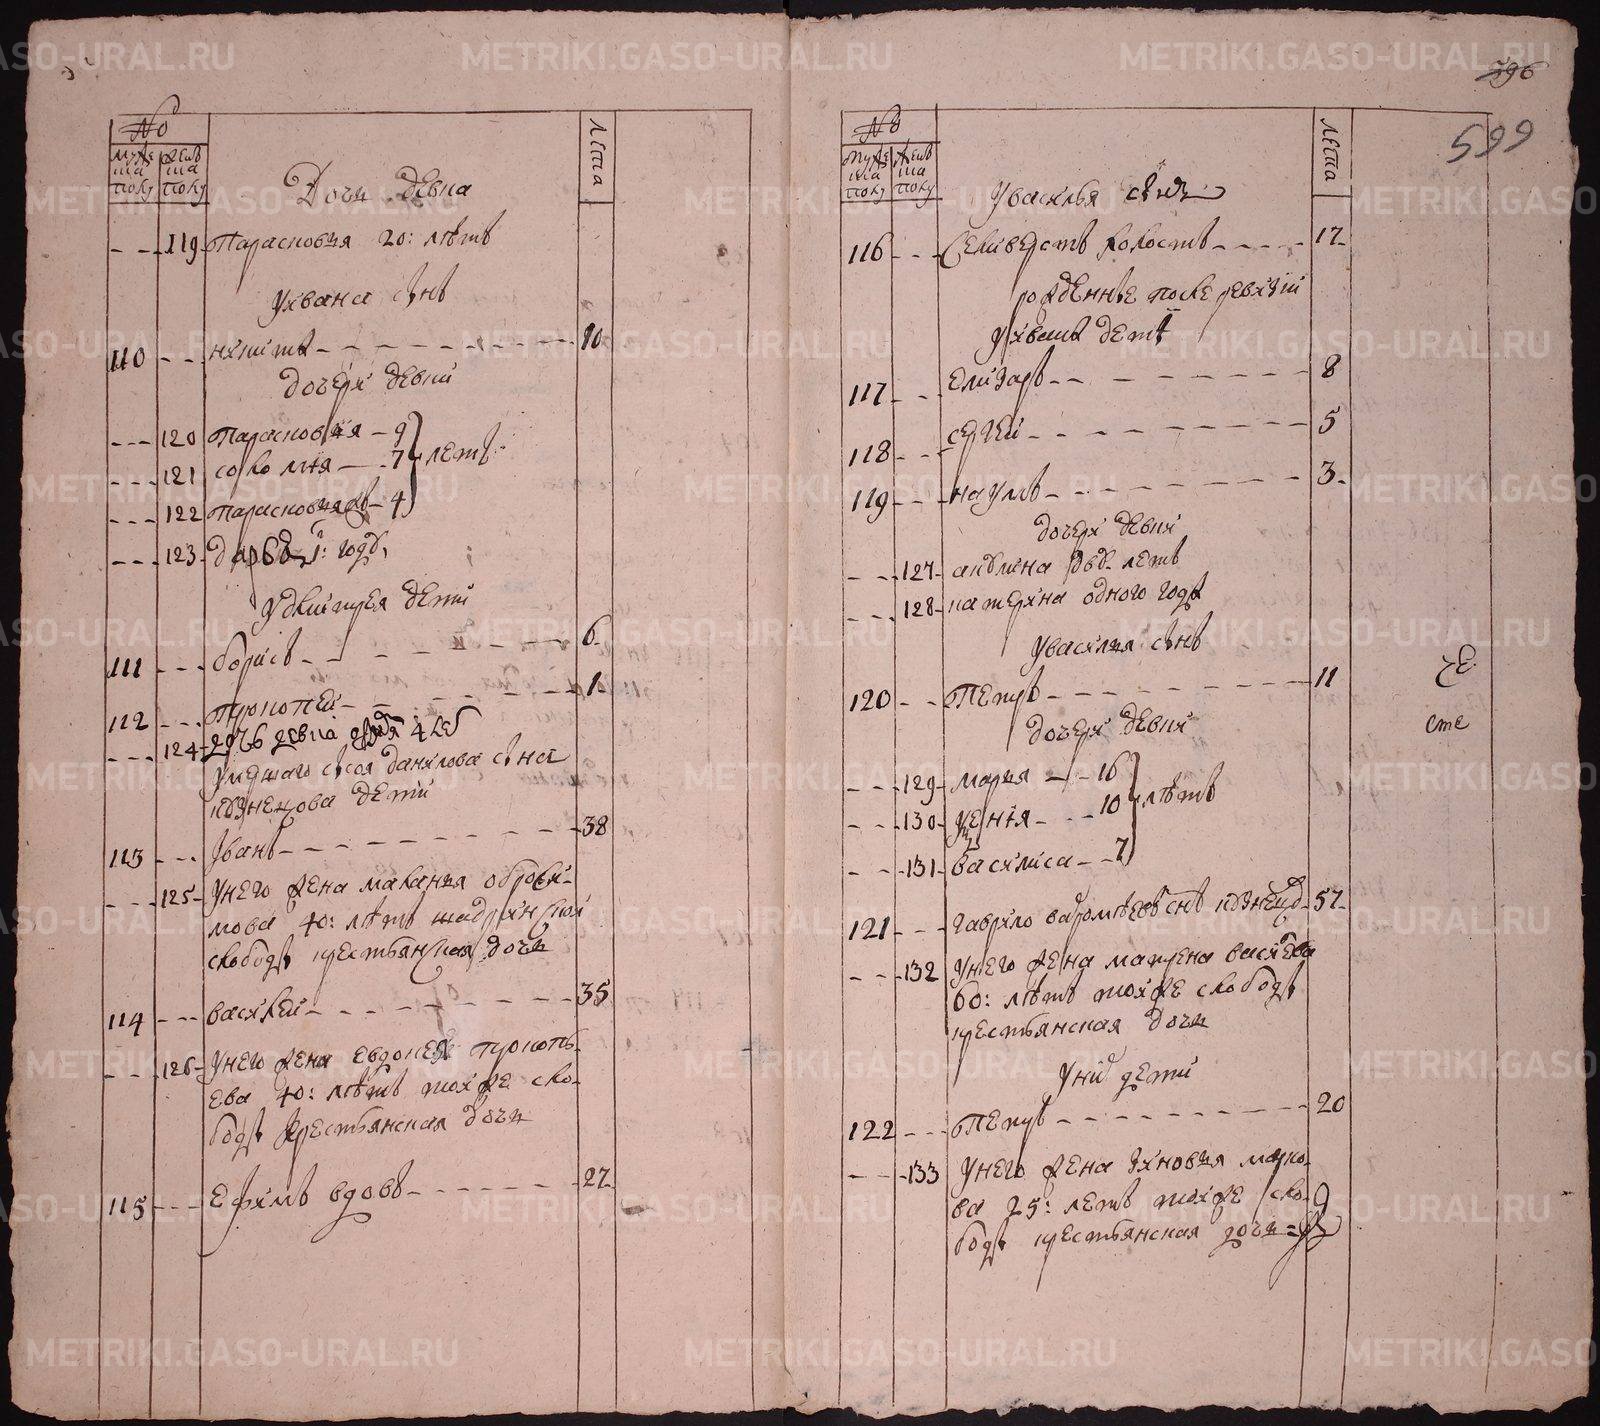 №
мужеска полу
женска полу
лета
Дочь девка
119 Парасковья 20: летъ
У Ивана сынъ
110 Никита 10
дочери девки
120 Парасковья 9
121 Соломия 7 летъ
122 Парасковья 4
123 Дарья 1: году
У Дмитрея дети
111 Борисъ 6
112 Прокопей 1
124 дочь девка 4 лет
Умершаго Сысоя Данилова сына
Кузнецова дети
113 Иванъ 38
125 У него жена Маланья
мова 40: летъ Шадринской
слободы крестьянская дочь
114 Василей 35
126 У него жена Евдокея Прокопь-
ева 40: летъ той же сло-
боды крестьянская дочь
115 Ефимъ вдовъ 27
596
599
№
мужеска полу
женска полу
лета
У Василья сынъ
116 Селиверстъ холостъ 17
рожденные после ревизии
у Ивана дети
117 Елизаръ 8
118 Сергей 5
119 Наумъ 3
дочери девки
127 Акулина дву летъ
128 Катерина одного году
У Василья сынъ
120 Петръ 11
дочери девки
129 Марья 16
130 10 летъ
131 Василиса 7
121 Гаврило сынъ Кузнецовъ 57
132 У него жена Матрена Васильева
60: летъ той же слободы
крестьянская дочь
У них дети
122 Петръ 20
133 У него жена Зиновья Марко-
ва 25: летъ той же сло-
боды крестьянская дочь
METRIKI.GASO-URAL.RU